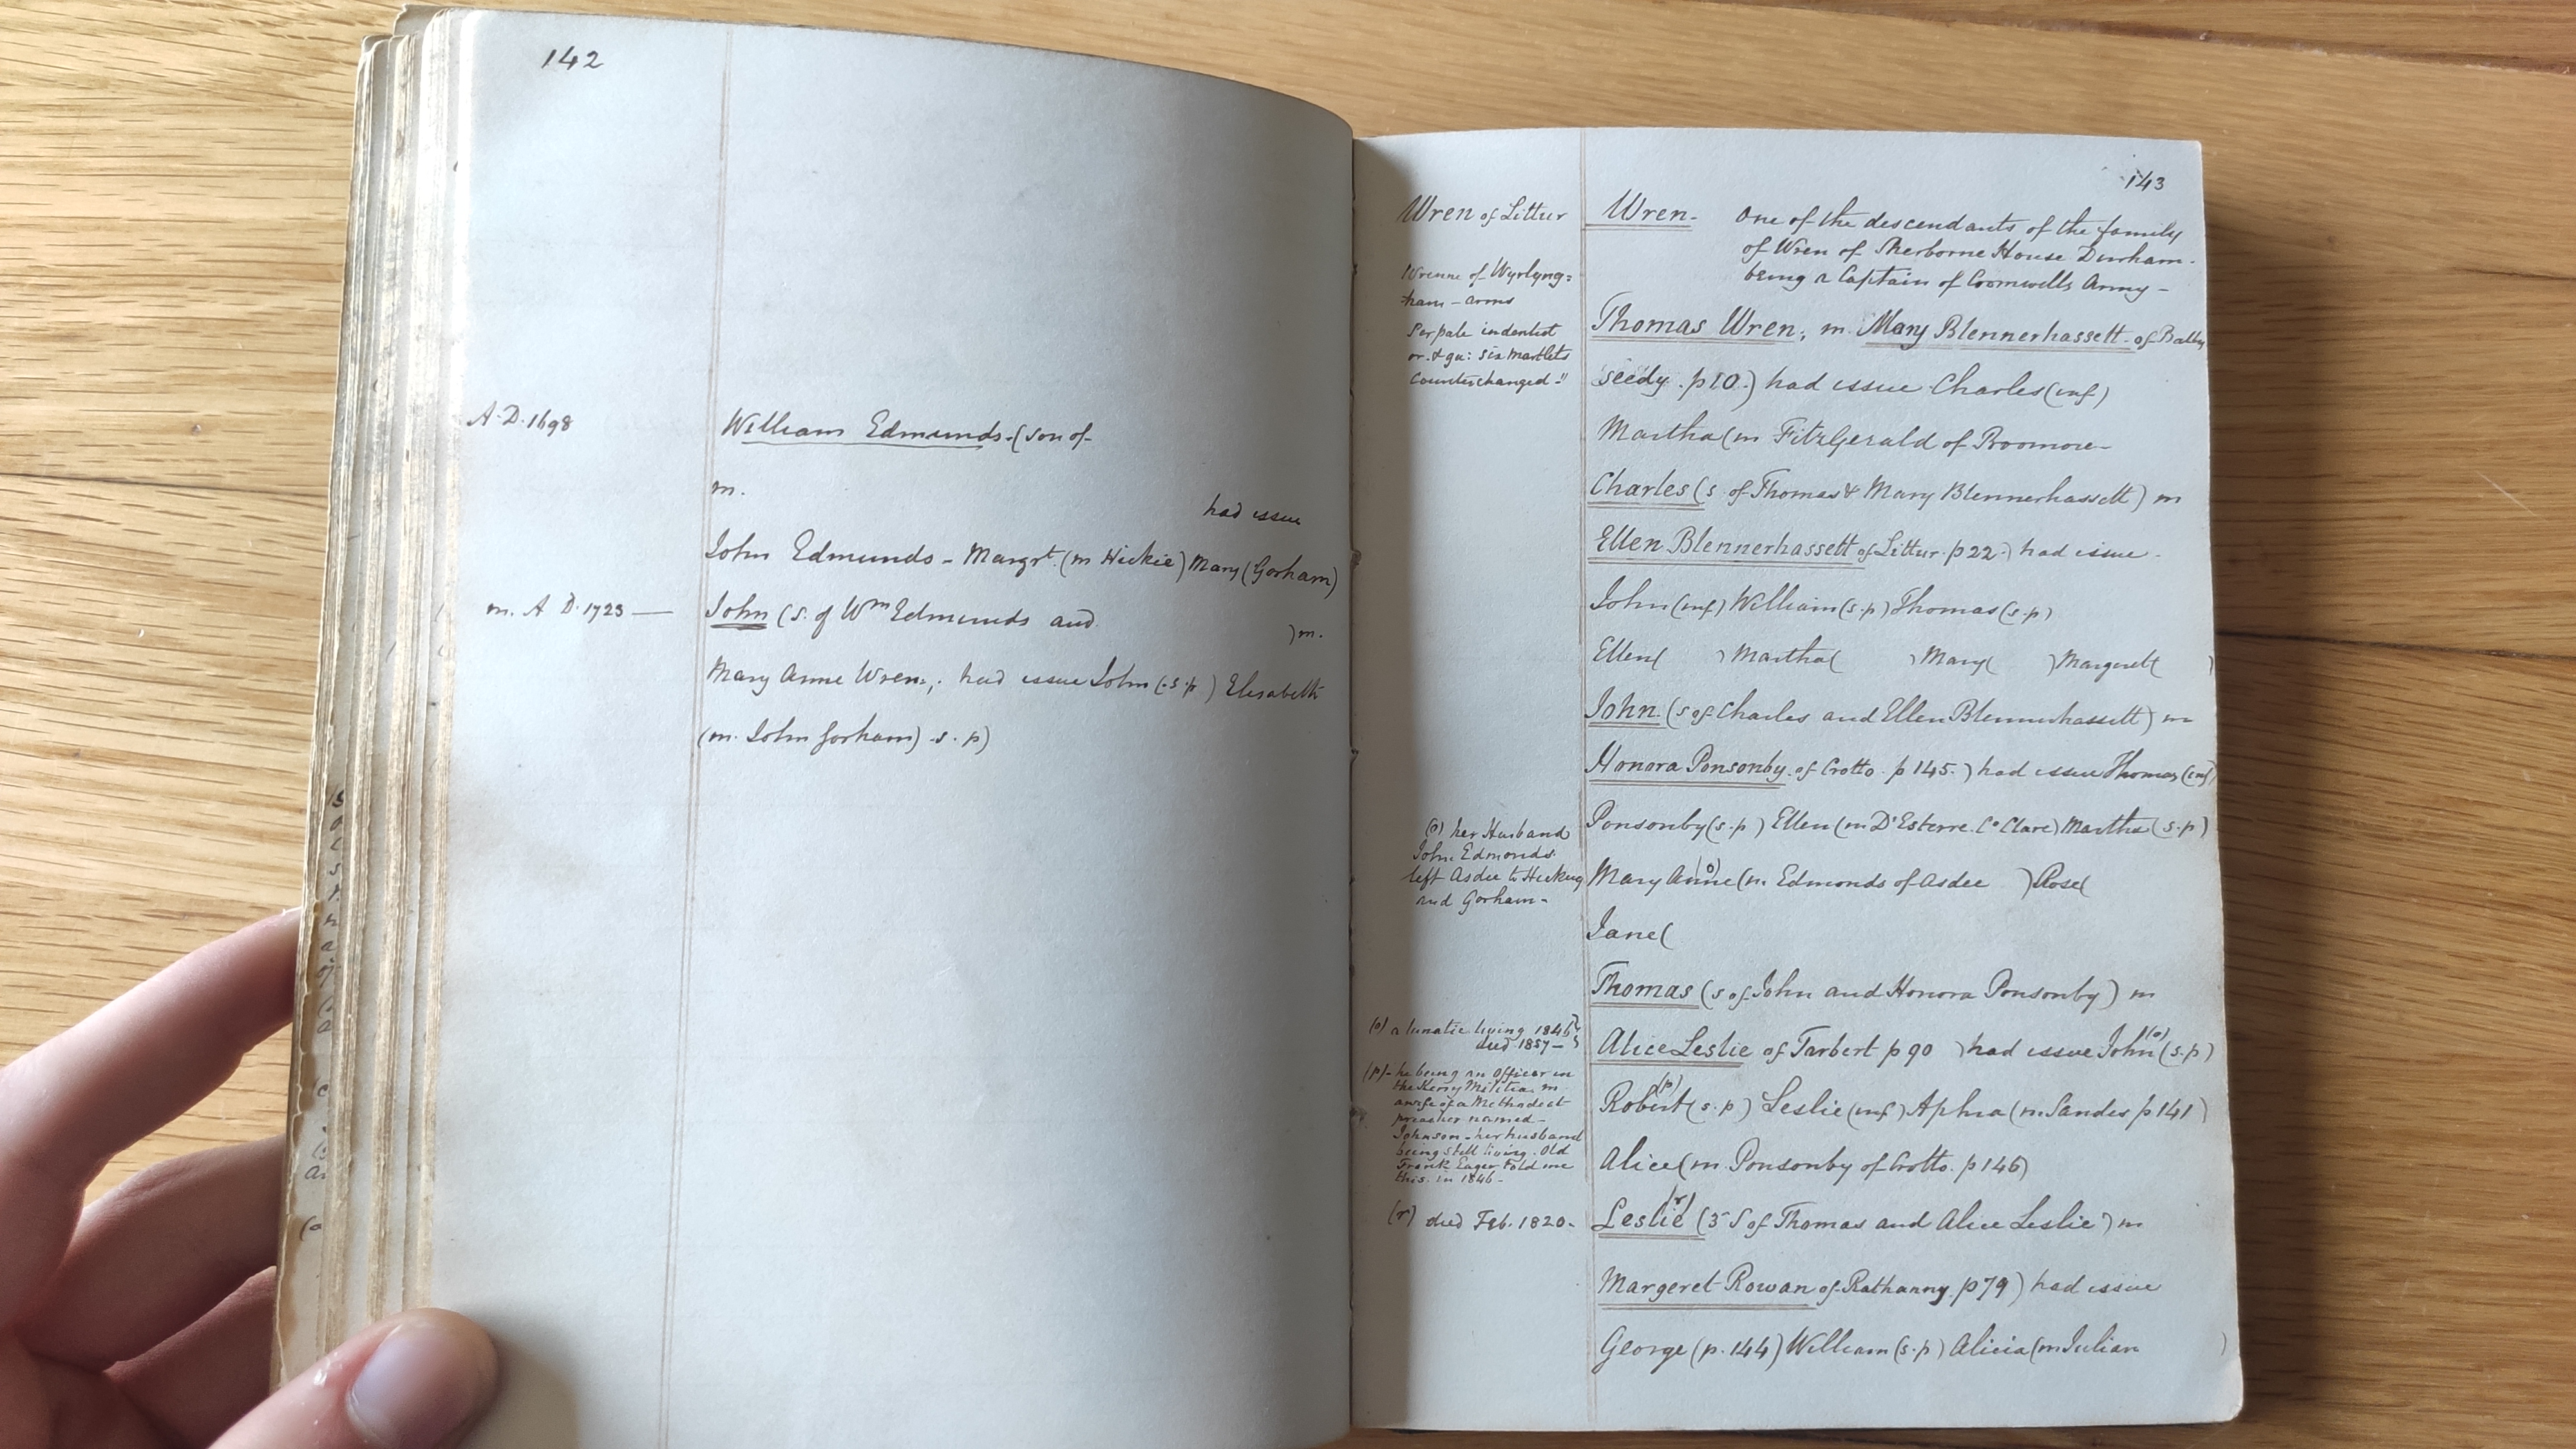 142
A.D. 1698
William Edmunds - (son of -
m.
had issue
John Edmunds - Margrt. (m Hickie) Mary (Gorham)
m. A D. 1723 —
John (s. of Wm Edmunds and )m.
Mary Anne Wren; had issue John (s.p) Elisabeth
(m. John Gorham) s. p)
143
Wren of Littur
Wrenne of Wyrlyng=
ham - arms
Per pale indented
or. & gu: six martlets
Counterchanged -"
(o) her Husband
John Edmonds.
left Asdee to Hickey
and Gorham -
(o) a lunatic living 1846
died 1857 -
(p) - he being an Officer in
the Kerry Militia, m.
a wife of a Methodist
preacher named -
Johnson - her husband
being still living. Old
Frank Eager told me
this. in 1846 -
(r) died Feb. 1820 -
Wren - One of the descendants of the family
of Wren of Sherborne House Durham -
being a Captain of Cromwells Army -
Thomas Wren; m. Mary Blennerhassett - of Bally
seedy. p10.) had issue Charles (inf)
Martha (m FitzGerald of Roomore -
Charles (s of Thomas & Mary Blennerhassett) m
Ellen Blennerhassett of Littur. p22.) had issue -
John (inf) William (s.p) Thomas (s.p)
Ellen( ) Martha( ) Mary( ) Margaret( )
John. (s of Charles and Ellen Blennerhassett) m
Honora Ponsonby. of Crotto. p145.) had issue Thomas (inf)
Ponsonby (s.p) Ellen (m D'Esterre. Co Clare) Martha (s.p)
Mary Anne (o) (m. Edmonds of Asdee ) Rose(
Jane(
Thomas (s of John and Honora Ponsonby) m
Alice Leslie of Tarbert p90 ) had issue John (o) (s.p)
Robert (p) (s.p) Leslie (inf) Aphra (m. Sandes p141)
Alice (m Ponsonby of Crotto. p146)
Leslie (r) (3 S of Thomas and Alice Leslie) m
Margeret Rowan of Rathanny. p79) had issue
George (p. 144) William (s.p) Alicia (m Julian )